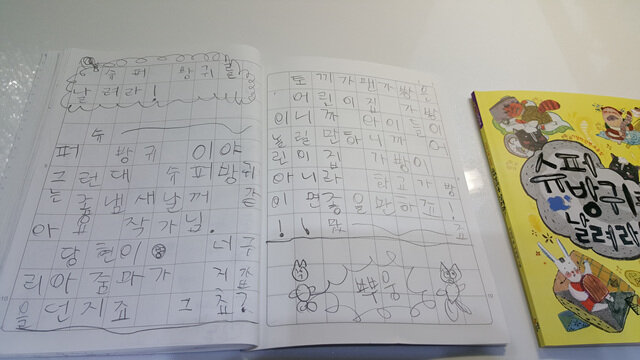 슈퍼 방귀를
날려라!
슈
퍼 방귀 이야
그런대 슈퍼방귀
는 똥냄새날꺼 같
아요 작가님.
당현이 너구
리아줌마가 지뢰
을 던지죠 그죠?
토끼가 팬가방은
어린이집 가방
이니까 아이들이
놀릴만하니까 어
린이집 가방이
아니라 학교가방
이면좋을만하죠!
!! 맞죠
뿌웅
슈퍼
방귀를
날려라